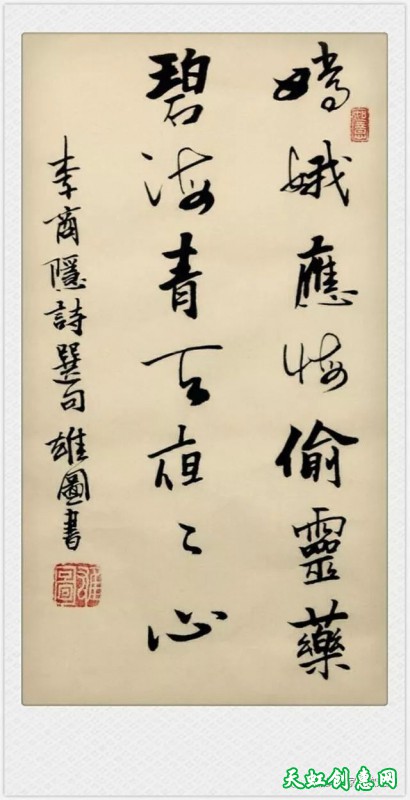 嫦娥應悔偷靈藥
碧海青天夜〻心
李商隱詩選句雄圖書
天虹创惠网